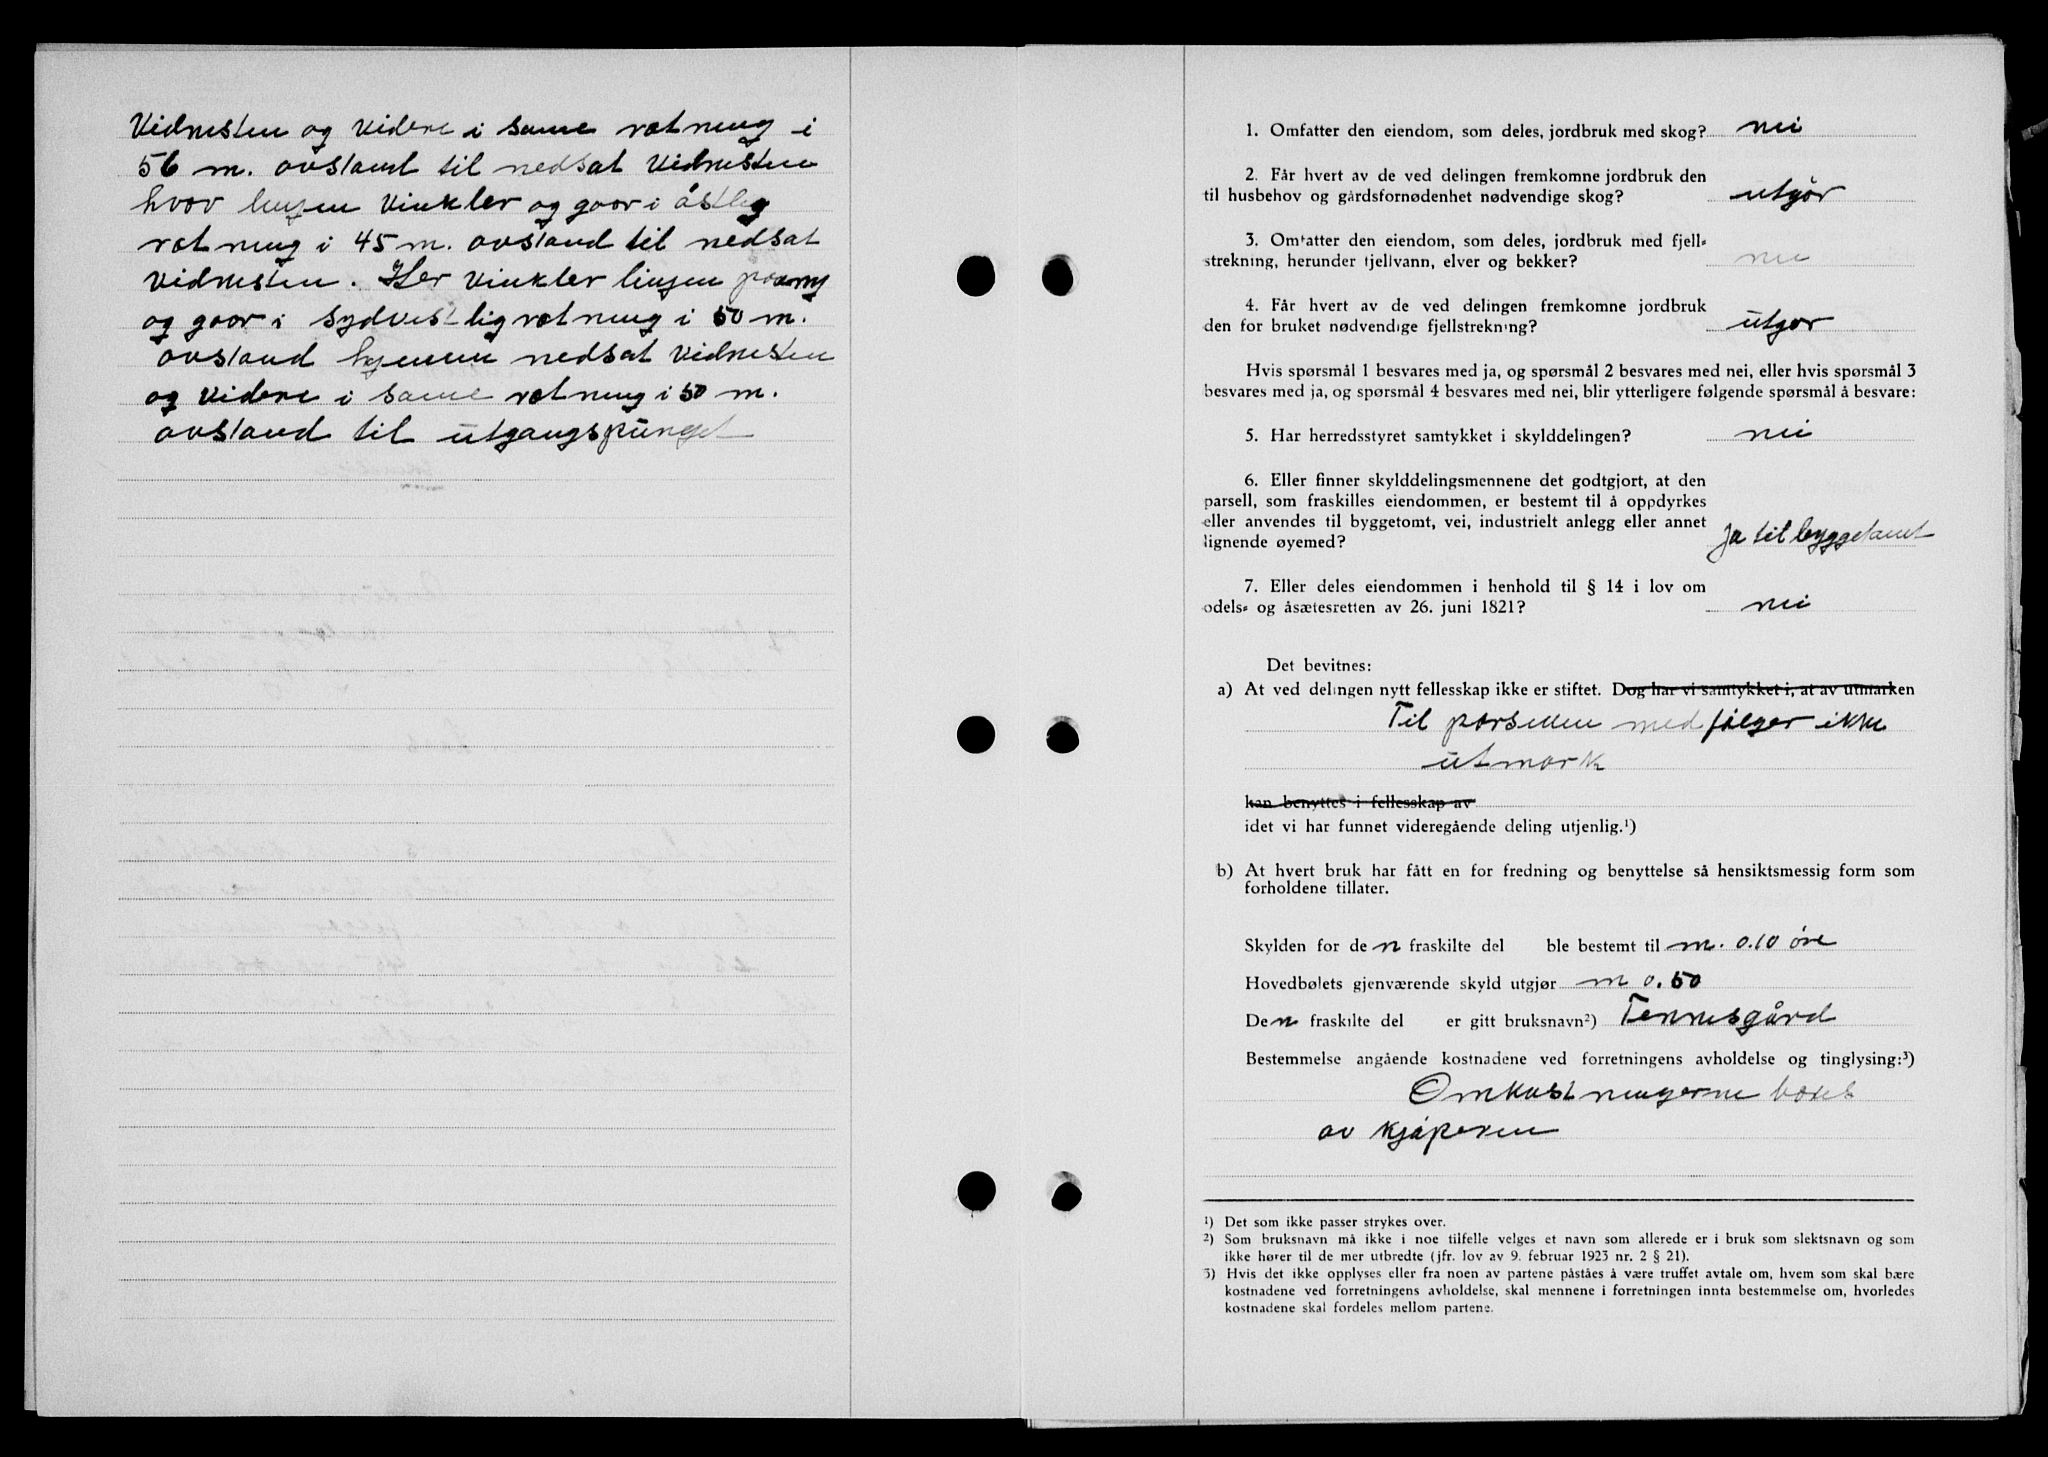 Vidnesten og videre i same retning i
56 m. avstand til nedsat Vidnesten
hvor linjen vinkler og gaar i østlig
retning i 45 m. avstand til nedsat
vidnesten. Her vinkler linjen paany
og gaar i sydvestlig retning i 50 m.
avstand hjemm nedsat vidnesten
og videre i same retning i 50 m.
avstand til utgangspunget
1. Omfatter den eiendom, som deles, jordbruk med skog? nei
2. Får hvert av de ved delingen fremkomne jordbruk den
til husbehov og gårdsfornødenhet nødvendige skog? utgår
3. Omfatter den eiendom, som deles, jordbruk med fjell-
strekning, herunder fjellvann, elver og bekker? nei
4. Får hvert av de ved delingen fremkomne jordbruk
den for bruket nødvendige fjellstrekning? utgår
Hvis spørsmål 1 besvares med ja, og spørsmål 2 besvares med nei, eller hvis spørsmål 3
besvares med ja, og spørsmål 4 besvares med nei, blir ytterligere følgende spørsmål å besvare:
5. Har herredsstyret samtykket i skylddelingen? nei
6. Eller finner skylddelingsmennene det godtgjort, at den
parsell, som fraskilles eiendommen, er bestemt til å oppdyrkes
eller anvendes til byggetomt, vei, industrielt anlegg eller annet
lignende øyemed? Ja til byggetomt
7. Eller deles eiendommen i henhold til § 14 i lov om
odels- og åsætesretten av 26. juni 1821? nei
Det bevitnes:
a) At ved delingen nytt fellesskap ikke er stiftet. Dog har vi samtykket i, at av utmarken
Til parsellen medfølger ikke
utmark
kan benyttes i fellesskap av
idet vi har funnet videregående deling utjenlig.¹)
b) At hvert bruk har fått en for fredning og benyttelse så hensiktsmessig form som
forholdene tillater.
Skylden for den fraskilte del ble bestemt til m. 0.10 øre
Hovedbølets gjenværende skyld utgjør m 0.50
Den fraskilte del er gitt bruksnavn²) Tennisgård
Bestemmelse angående kostnadene ved forretningens avholdelse og tinglysing:³)
Omkostningerne bæres
av kjøperen
¹) Det som ikke passer strykes over.
²) Som bruksnavn må ikke i noe tilfelle velges et navn som allerede er i bruk som slektsnavn og som
ikke hører til de mer utbredte (jfr. lov av 9. februar 1923 nr. 2 § 21).
³) Hvis det ikke opplyses eller fra noen av partene påståes å være truffet avtale om, hvem som skal bære
kostnadene ved forretningens avholdelse, skal mennene i forretningen innta bestemmelse om, hvorledes
kostnadene skal fordeles mellom partene.